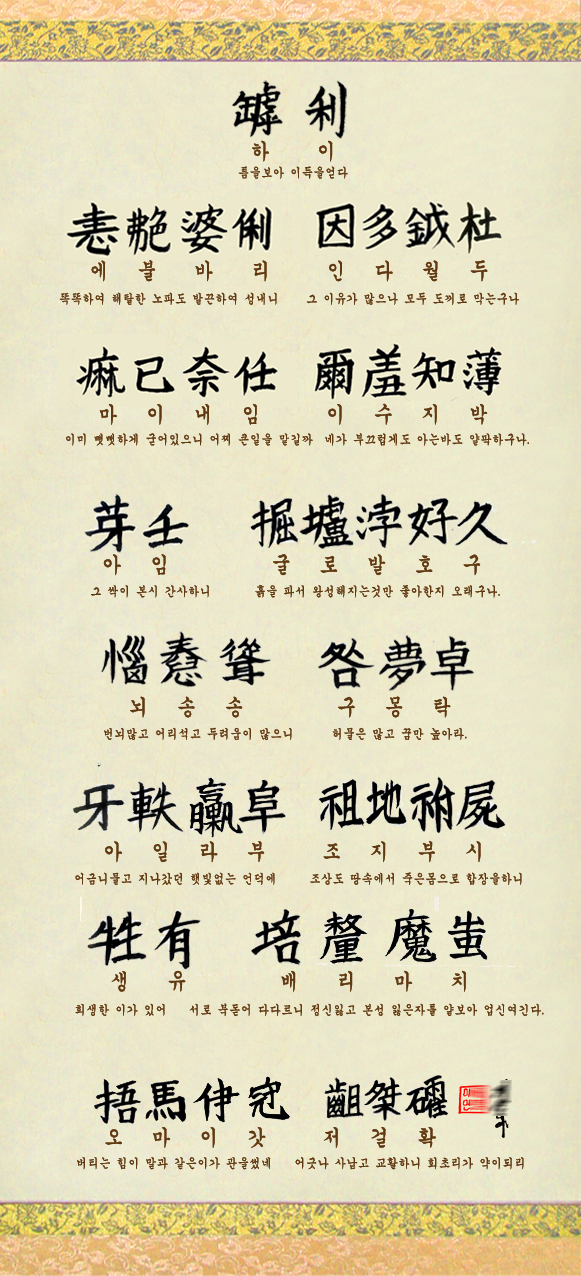 罅利
하 이
틈을보아 이득을얻다
恚艴婆俐 因多鉞杜
에 불 바 리 인 다 월 두
똑똑하여 해탈한 노파도 발끈하여 성내니 그 이유가 많으나 모두 도끼로 막는구나
痲已奈任 爾羞知薄
마 이 내 임 이 수 지 박
이미 뻣뻣하게 굳어있으니 어찌 큰일을 맡길까 네가 부끄럽게도 아는바도 얄팍하구나.
芽壬 掘壚浡好久
아 임 굴 로 발 호 구
그 싹이 본시 간사하니 흙을 파서 왕성해지는것만 좋아한지 오래구나.
惱憃 咎夢卓
뇌 송 송 구 몽 탁
번뇌많고 어리석고 두려움이 많으니 허물은 많고 꿈만 높아라.
牙軼臝阜 祖地祔屍
아 일 라 부 조 지 부 시
어금니물고 지나갔던 햇빛없는 언덕에 조상도 땅속에서 죽은몸으로 합장을하니
牲有 培釐魔蚩
생 유 배 리 마 치
희생한 이가 있어 서로 북돋어 다다르니 정신잃고 본성 잃은자를 얕보아 업신여긴다.
捂馬伊 齟桀
오 마 이 갓 저 걸 확
버티는 힘이 말과 같은이가 관을썼네 어긋나 사납고 교활하니 회초리가 약이되리